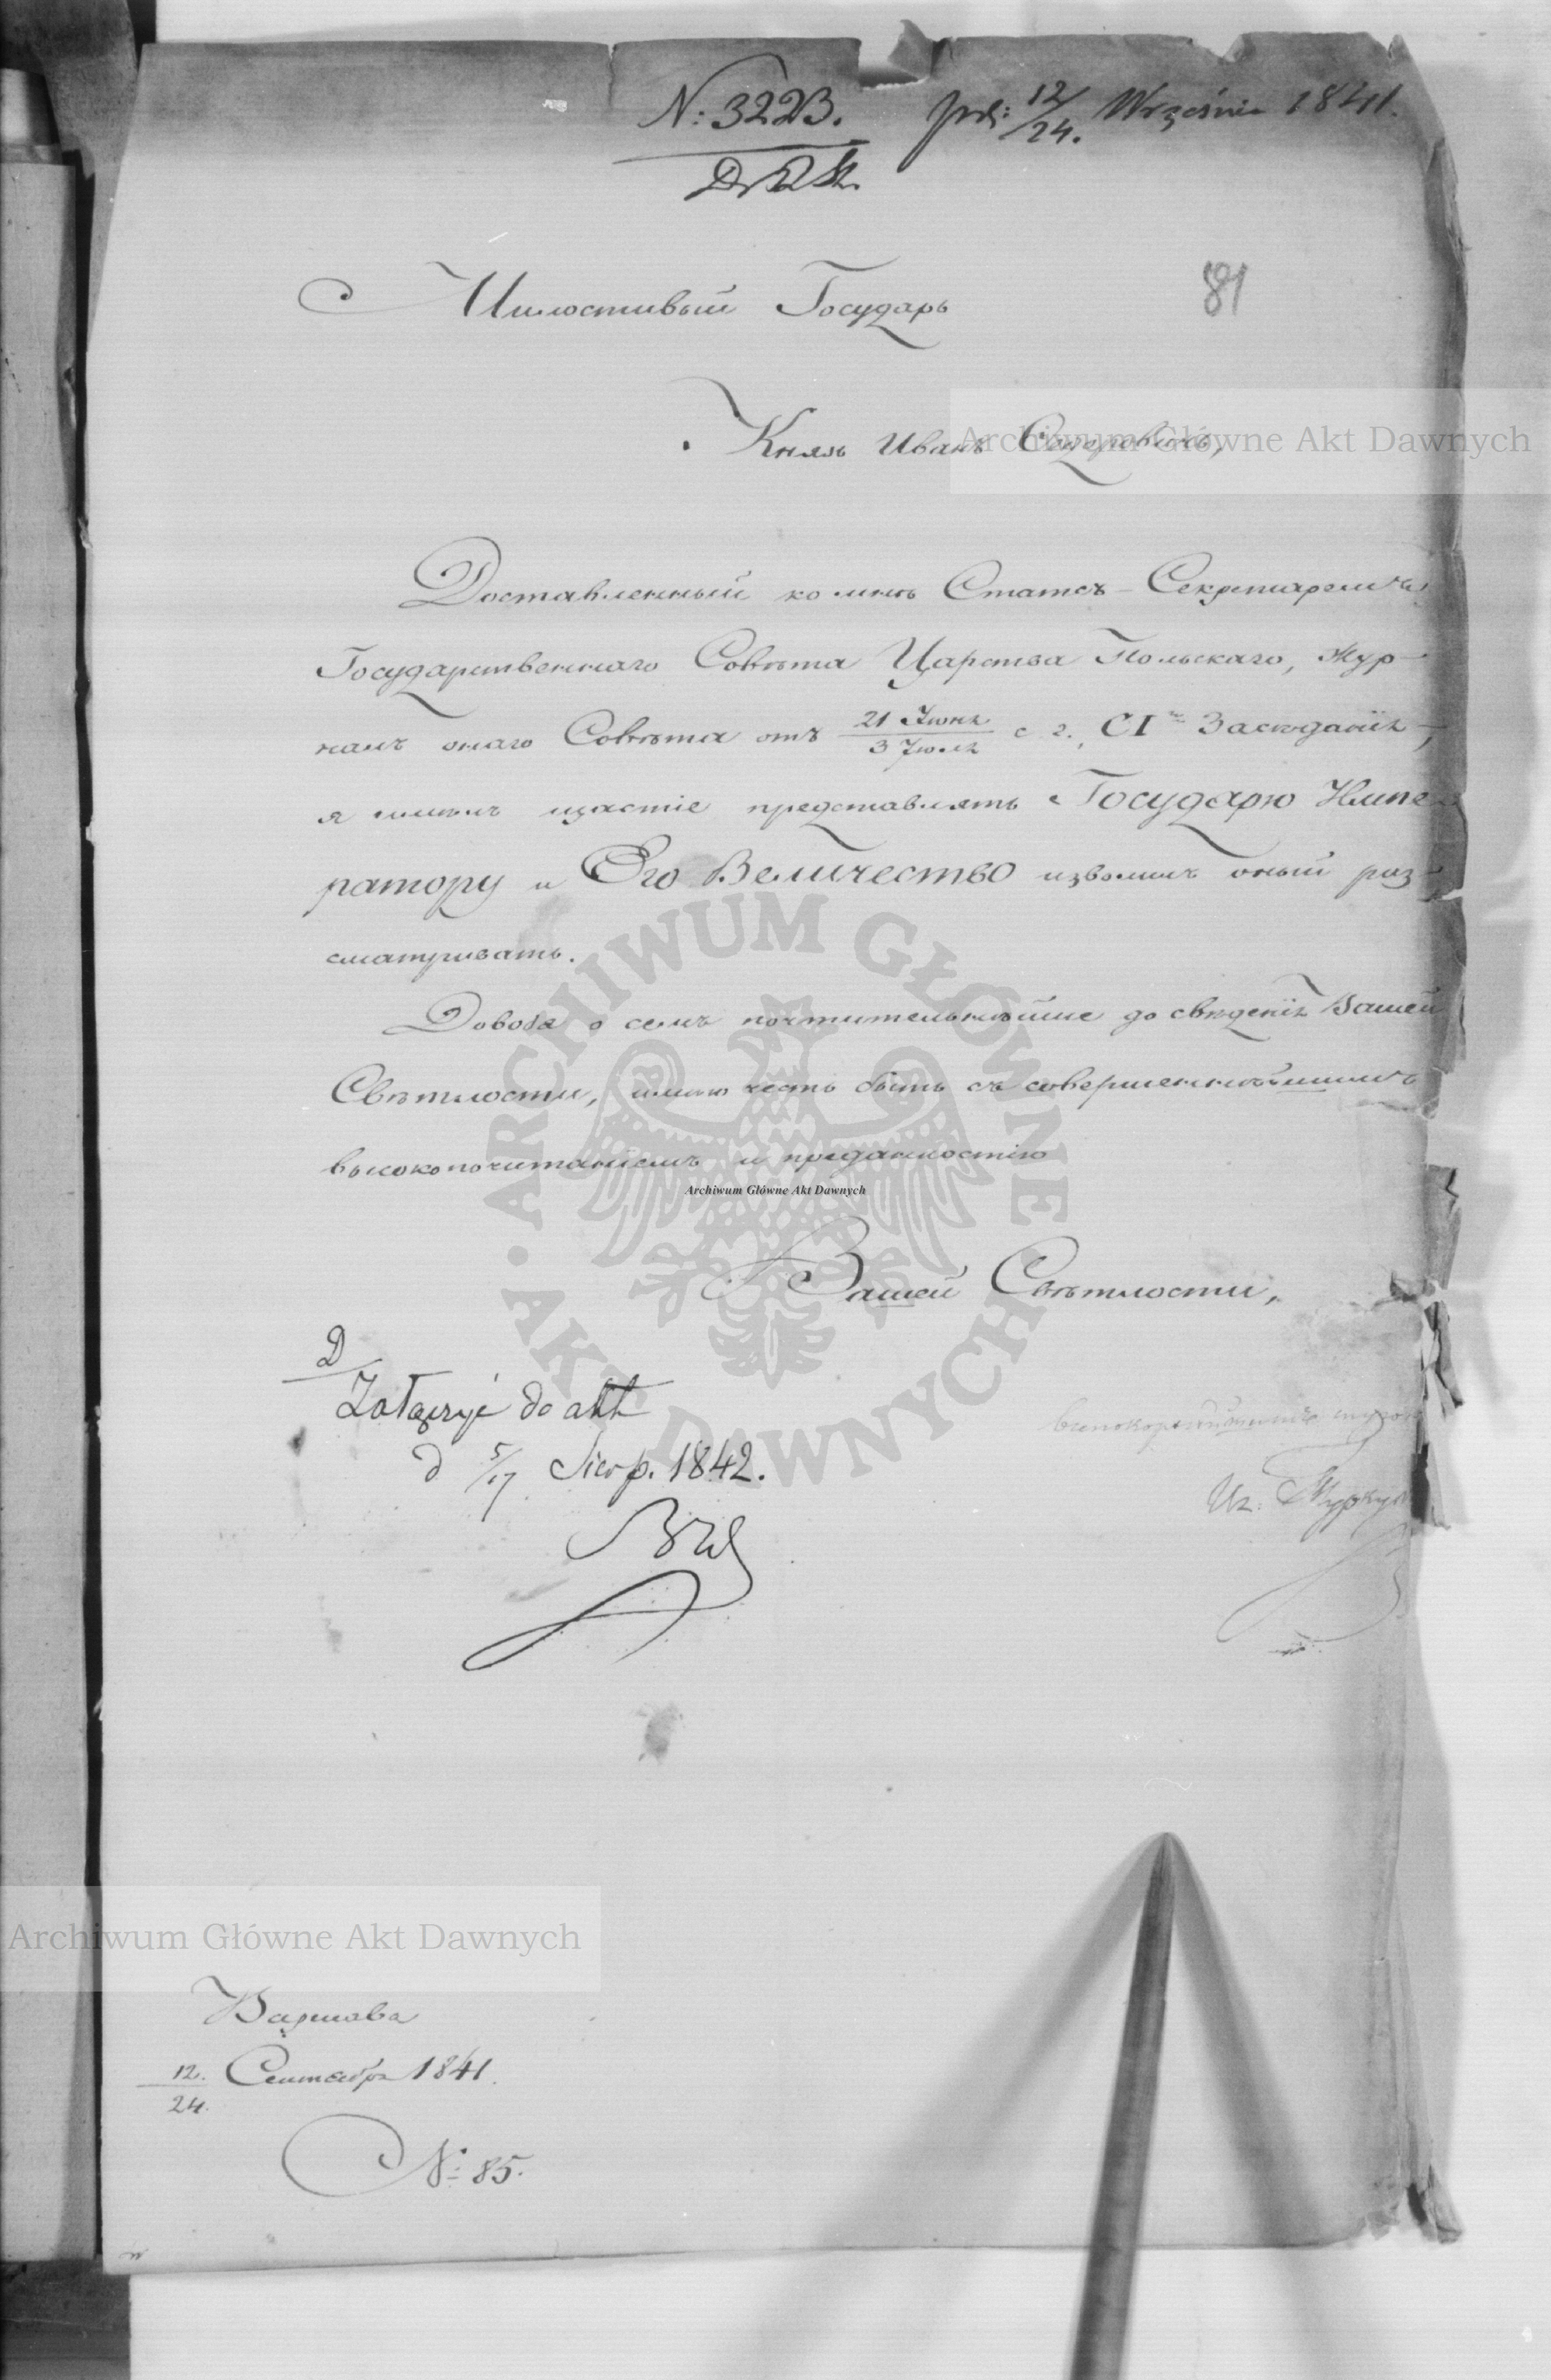 N: 3223. prod: 12/24. Września 1841.
81
Милостивый Государь
Князь Иванъ Федоровичъ,
Доставленный ко мнѣ Статсъ-Секретаремъ
Государственнаго Совѣта Царства Польскаго, Жур-
налъ онаго Совѣта отъ 21 Іюня/3 Іюля с. г., CI Засѣданія,
я имѣлъ щастіе представлять Государю Импе-
ратору и Его Величество изволилъ оный раз-
сматривать.
Доводя о семъ почтительнѣйше до свѣденія Вашей
Свѣтлости, имѣю честь быть съ совершеннѣйшимъ
высокопочитаніемъ и преданностію
Archiwum Główne Akt Dawnych
Вашей Свѣтлости,
D
Załączyć do akt
d 5/17 Sierp. 1842.
Иг. Туркулъ
Варшава
12./24. Сентября 1841.
№: 85.
Archiwum Główne Akt Dawnych
Archiwum Główne Akt Dawnych
ARCHIWUM GŁÓWNE AKT DAWNYCH